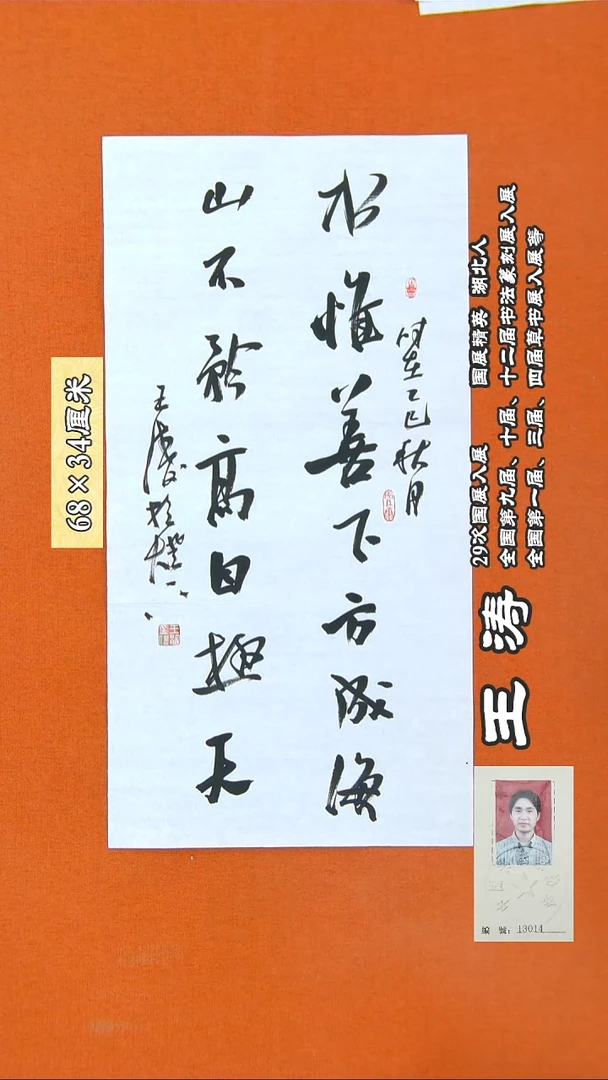 水惟善下方成海
山不矜高自極天
时在乙巳秋月
王涛
68×34厘米
29次国展入展 国展精英 湖北人
全国第九届、十届、十二届书法篆刻展入展
全国第一届、三届、四届草书展入展等
王涛
编号：13014